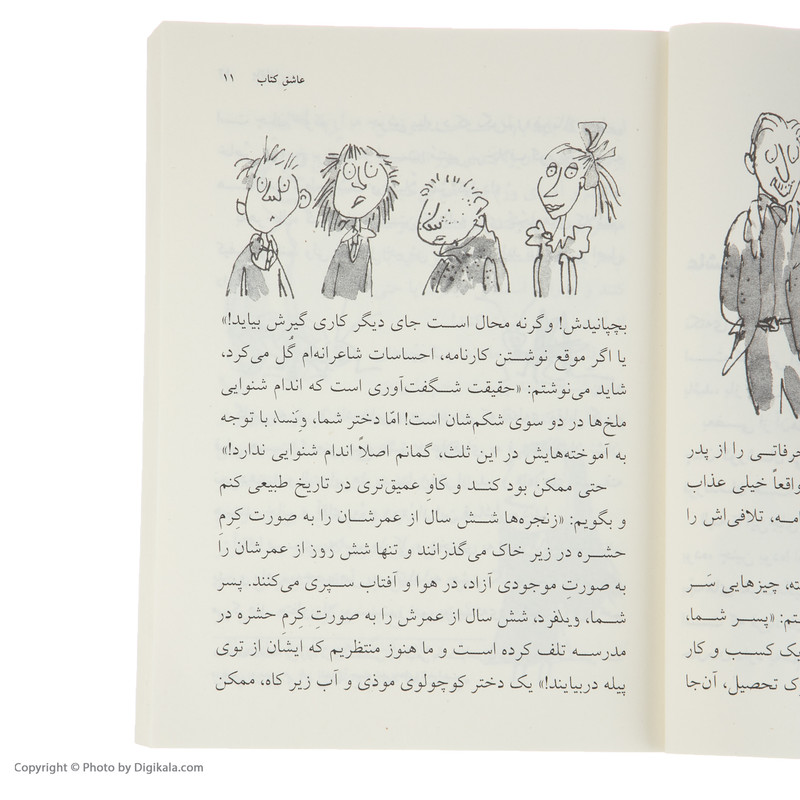 عاشقِ کتاب ۱۱
بچپانیدش! وگرنه محال است جای دیگر کاری گیرش بیاید!»
یا اگر موقع نوشتن کارنامه، احساسات شاعرانه‌ام گُل می‌کرد،
شاید می‌نوشتم: «حقیقت شگفت‌آوری است که اندام شنوایی
ملخ‌ها در دو سوی شکم‌شان است! امّا دختر شما، وِنسا، با توجه
به آموخته‌هایش در این ثلث، گمانم اصلاً اندام شنوایی ندارد!»
حتی ممکن بود کند و کاوِ عمیق‌تری در تاریخ طبیعی کنم
و بگویم: «زنجره‌ها شش سال از عمرشان را به صورت کِرمِ
حشره در زیر خاک می‌گذرانند و تنها شش روز از عمرشان را
به صورتِ موجودی آزاد، در هوا و آفتاب سپری می‌کنند. پسر
شما، ویلفرد، شش سال از عمرش را به صورتِ کِرمِ حشره در
مدرسه تلف کرده است و ما هنوز منتظریم که ایشان از توی
پیله دربیایند!» یک دختر کوچولوی موذی و آب زیر کاه، ممکن
حرفاتی را از پدر
واقعاً خیلی عذاب
تلافی‌اش را
چیزهایی سَر
«پسر شما،
یک کسب و کار
تحصیل، آن‌جا
Copyright © Photo by Digikala.com